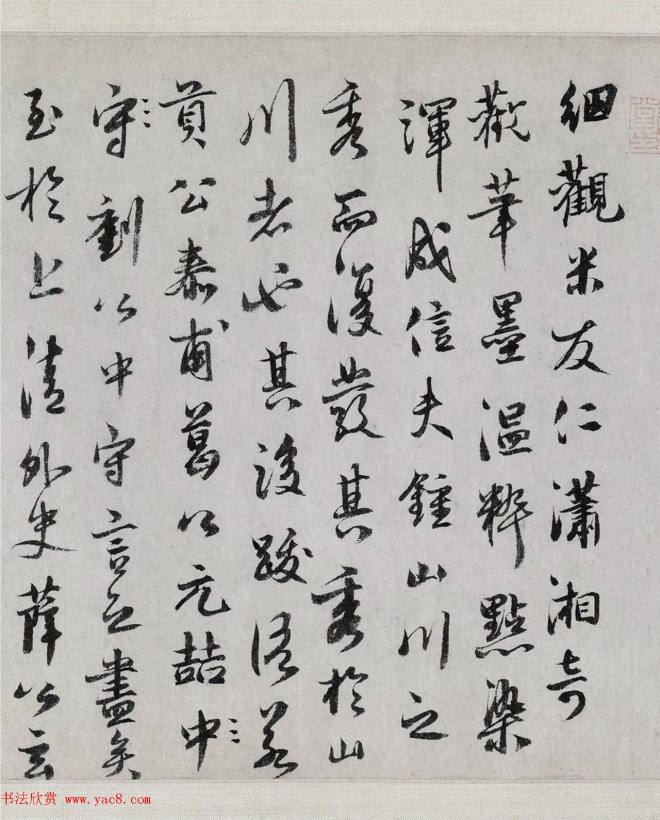 細觀米友仁瀟湘奇
觀筆墨溫粹點染
渾成信夫鍾山川之
秀而復發其秀於山
川者也其後跋語若
貢公泰甫葛公元喆中
守劉公中守言之盡矣
至於上清外史薛公玄
书法欣赏 www.yac8.com